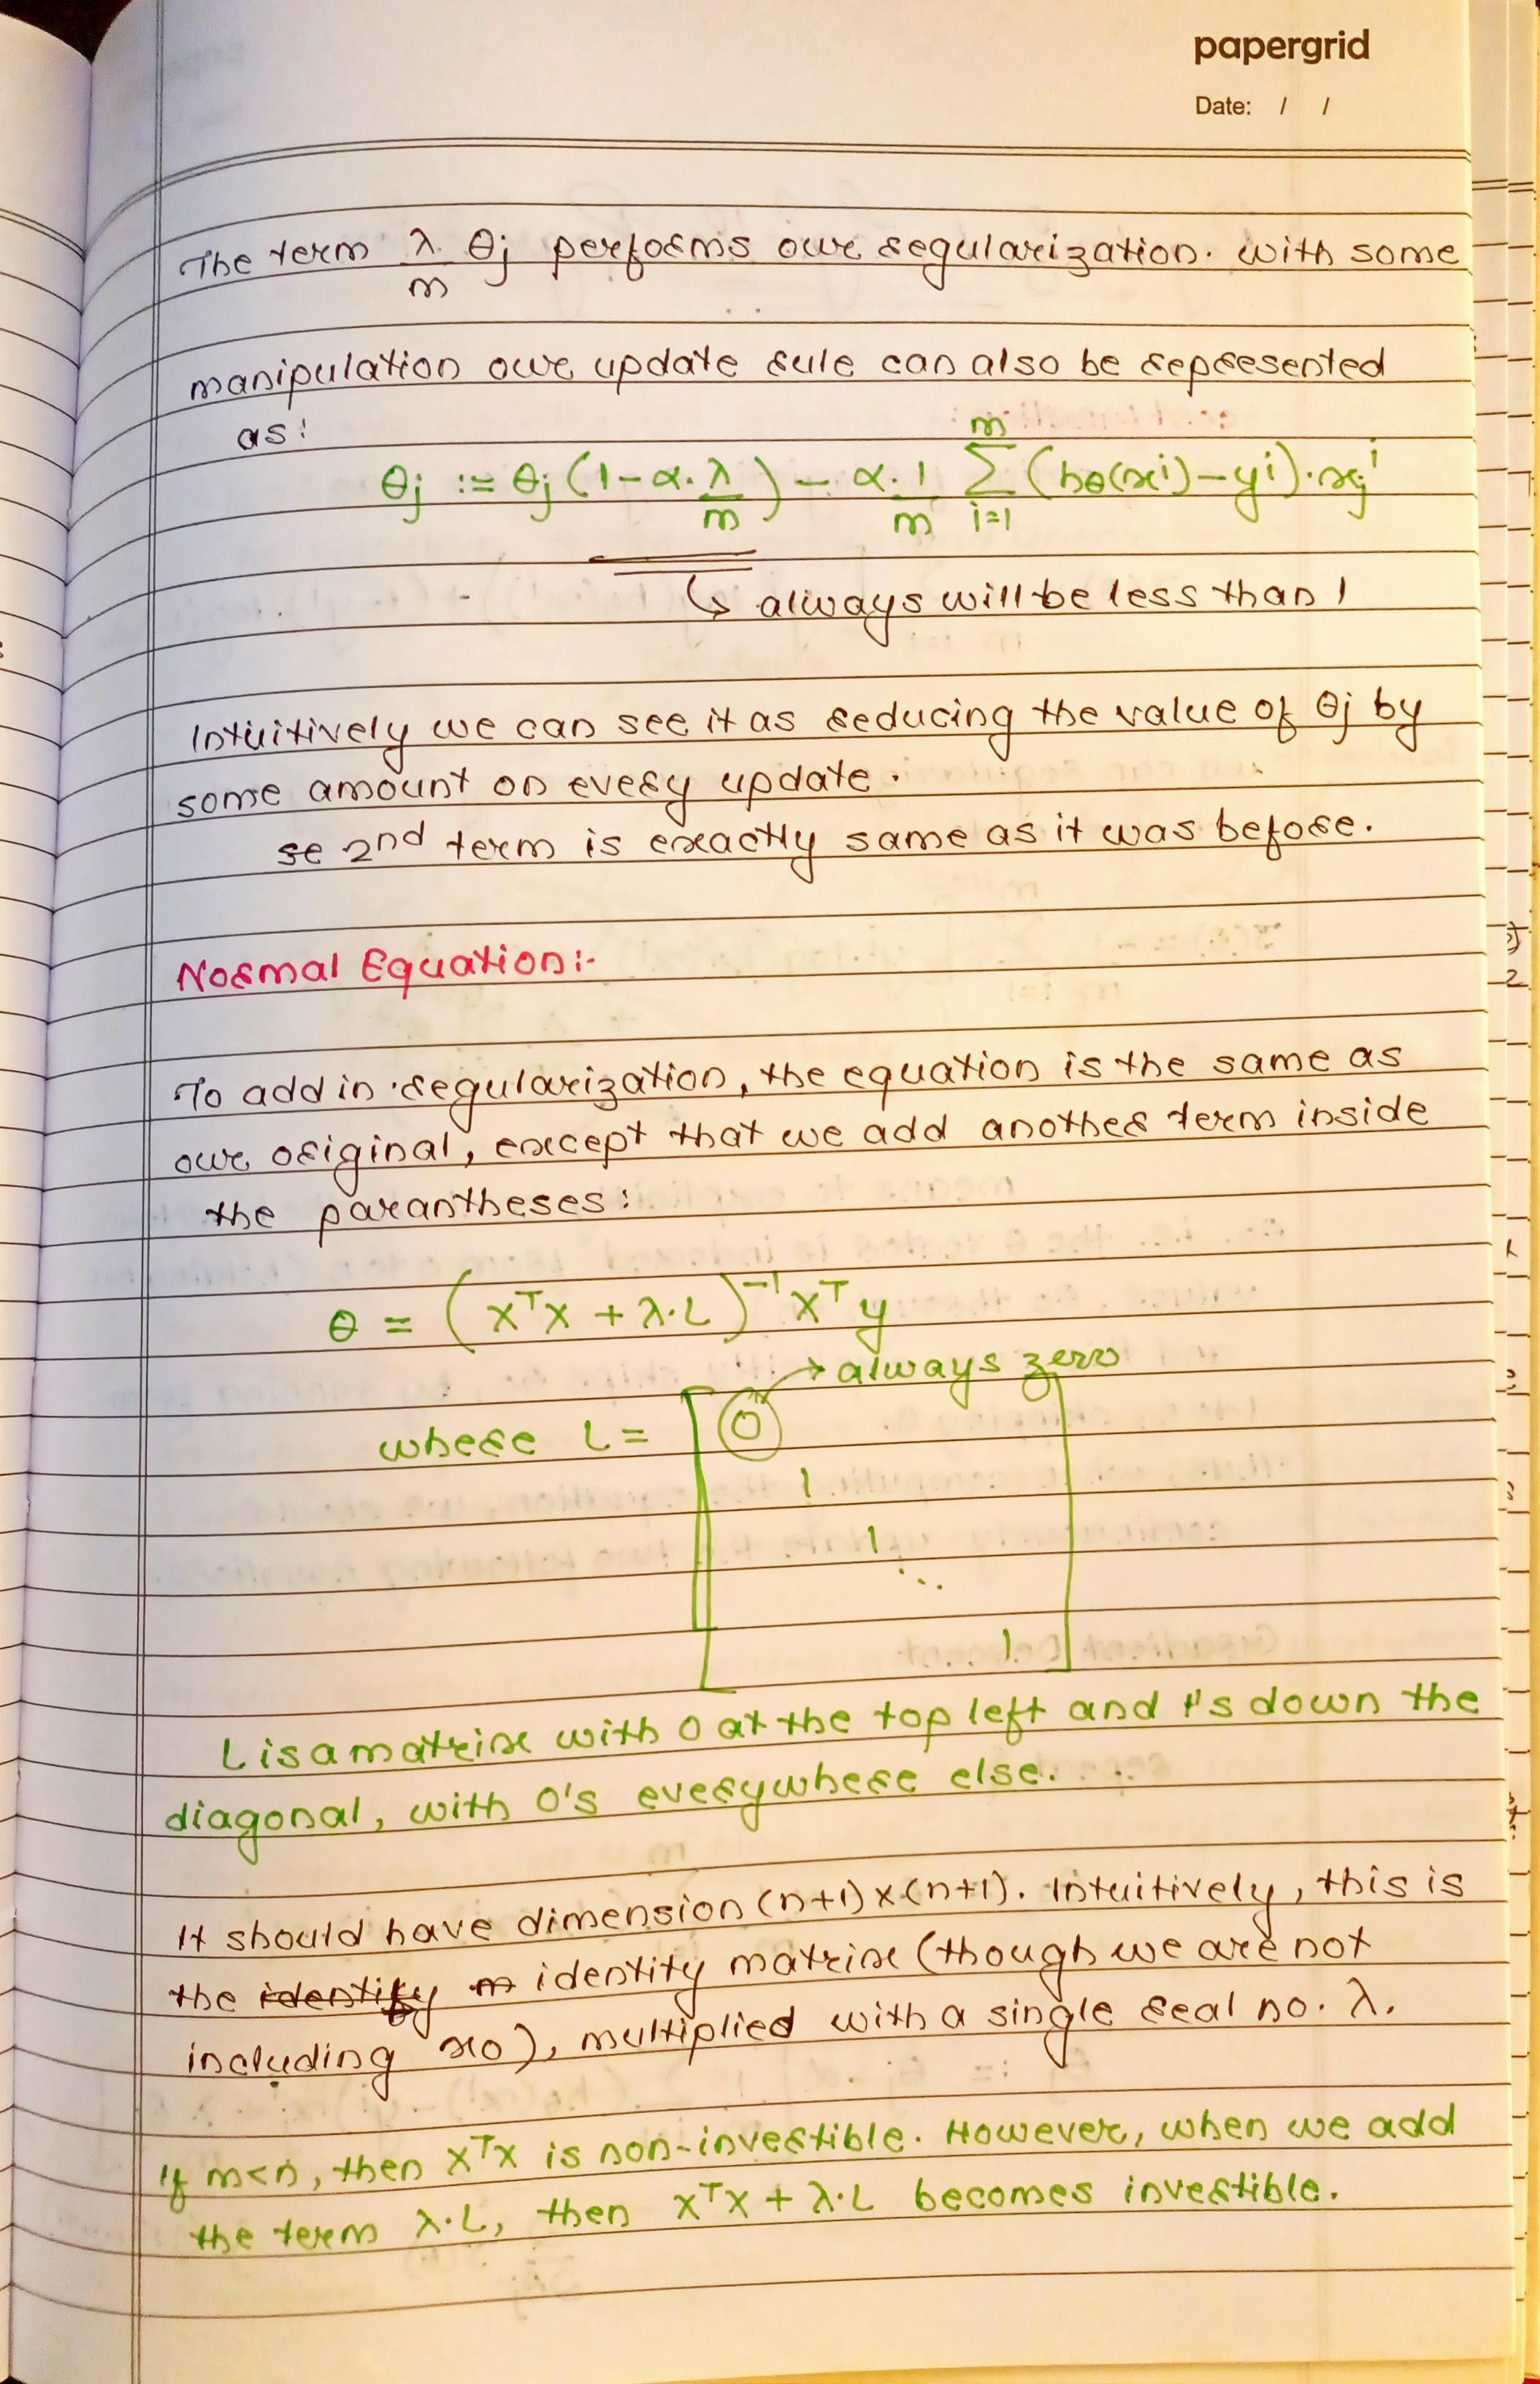 papergrid
Date: / /
The term λ/m θj performs our regularization. with some
manipulation our update rule can also be represented
as:
θj := θj (1-α.λ/m) - α.1/m ∑_{i=1}^{m} (hθ(xⁱ)-yⁱ).xjⁱ
↳ always will be less than 1
Intuitively we can see it as reducing the value of θj by
some amount on every update.
se 2nd term is exactly same as it was before.
Normal Equation:-
To add in regularization, the equation is the same as
our original, except that we add another term inside
the parantheses:
θ = (XᵀX + λ.L)⁻¹ Xᵀy
→ always zero
where L = [0
1
1
⋱
1]
L is a matrix with 0 at the top left and 1's down the
diagonal, with 0's everywhere else.
It should have dimension (n+1)x(n+1). Intuitively, this is
the identity matrix (though we are not
including x0), multiplied with a single real no. λ.
If m<n, then XᵀX is non-invertible. However, when we add
the term λ.L, then XᵀX + λ.L becomes invertible.